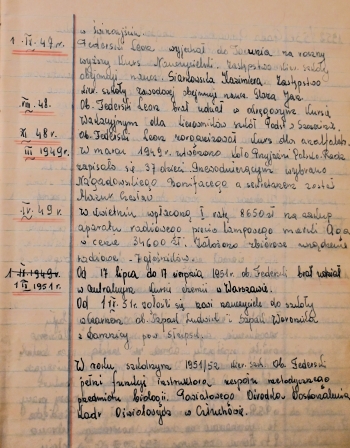 w świniejsin
1.IX.47.r. Federski Leon wyjechał do Torunia na roczny
wyższy Kurs Nauczycielski. Zastępstwo kier. szkoły
objęła naucz. Siankowska Kazimiera. Zastępstwo
kier. szkoły zawodowej objęła naucz. Jan.
VII. 48. Ob. Federski Leon brał udział w okręgowym Kursie
Wakacyjnym dla kierowników szkół Podst. w
XI 48 r. Ob. Federski Leon zorganizował kurs dla analfab.
III 1949r. W marcu 1949r. utworzono Koło Przyjaźni Polsko-Radz.
zapisało się 37 dzieci. Przewodniczącym wybrano
Bonifacego a sekretarzem został
Czesław
IV. 49 r W kwietniu wpłacono I ratę 8650 zł na zakup
aparatu radiowego pięcio lampowego marki Aga
w cenie 34600 zł. Założono zbiorowe urządzenie
radiowe
1 II 1949r. Od 17 lipca do 17 sierpnia 1951r. ob. Federski brał udział
1 IX 1951r. w Centralnym Kursie chemii w Warszawie.
Od 1 IX. 51r. zgłosili się nowi nauczyciele do szkoły
ob. Ludwik i Weronika
z pow. Sierpc.
W roku szkolnym 1951/52 kier. szk. Ob. Federski
pełni funkcję instruktora zespołu metodycznego
przedmiotu biologii. Powiatowego Ośrodka Doskonalenia
Kadr Oświatowych w